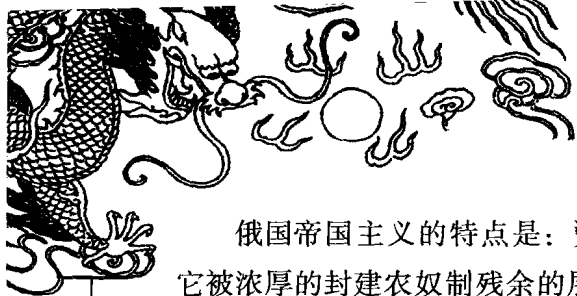 俄国帝国主义的特点是：
它被浓厚的封建农奴制残余的